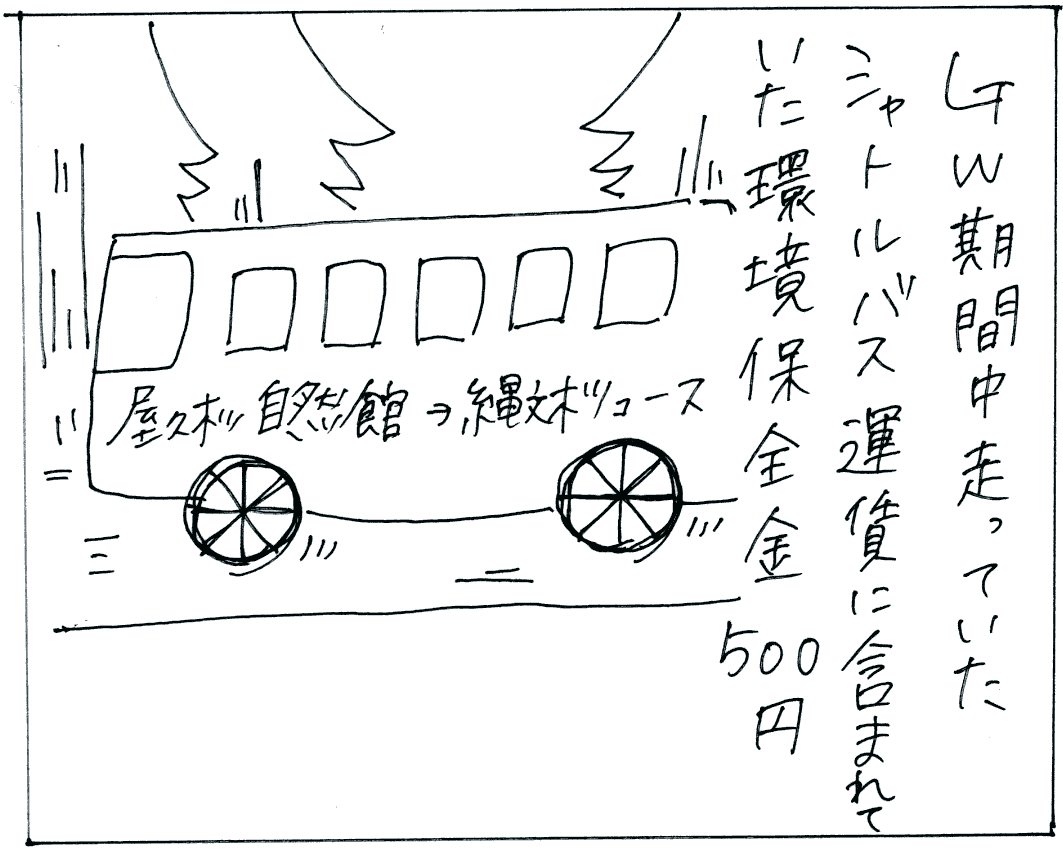 GW期間中走っていた
シャトルバス運賃に含まれて
いた環境保全金 500円
屋久杉自然館→縄文杉コース